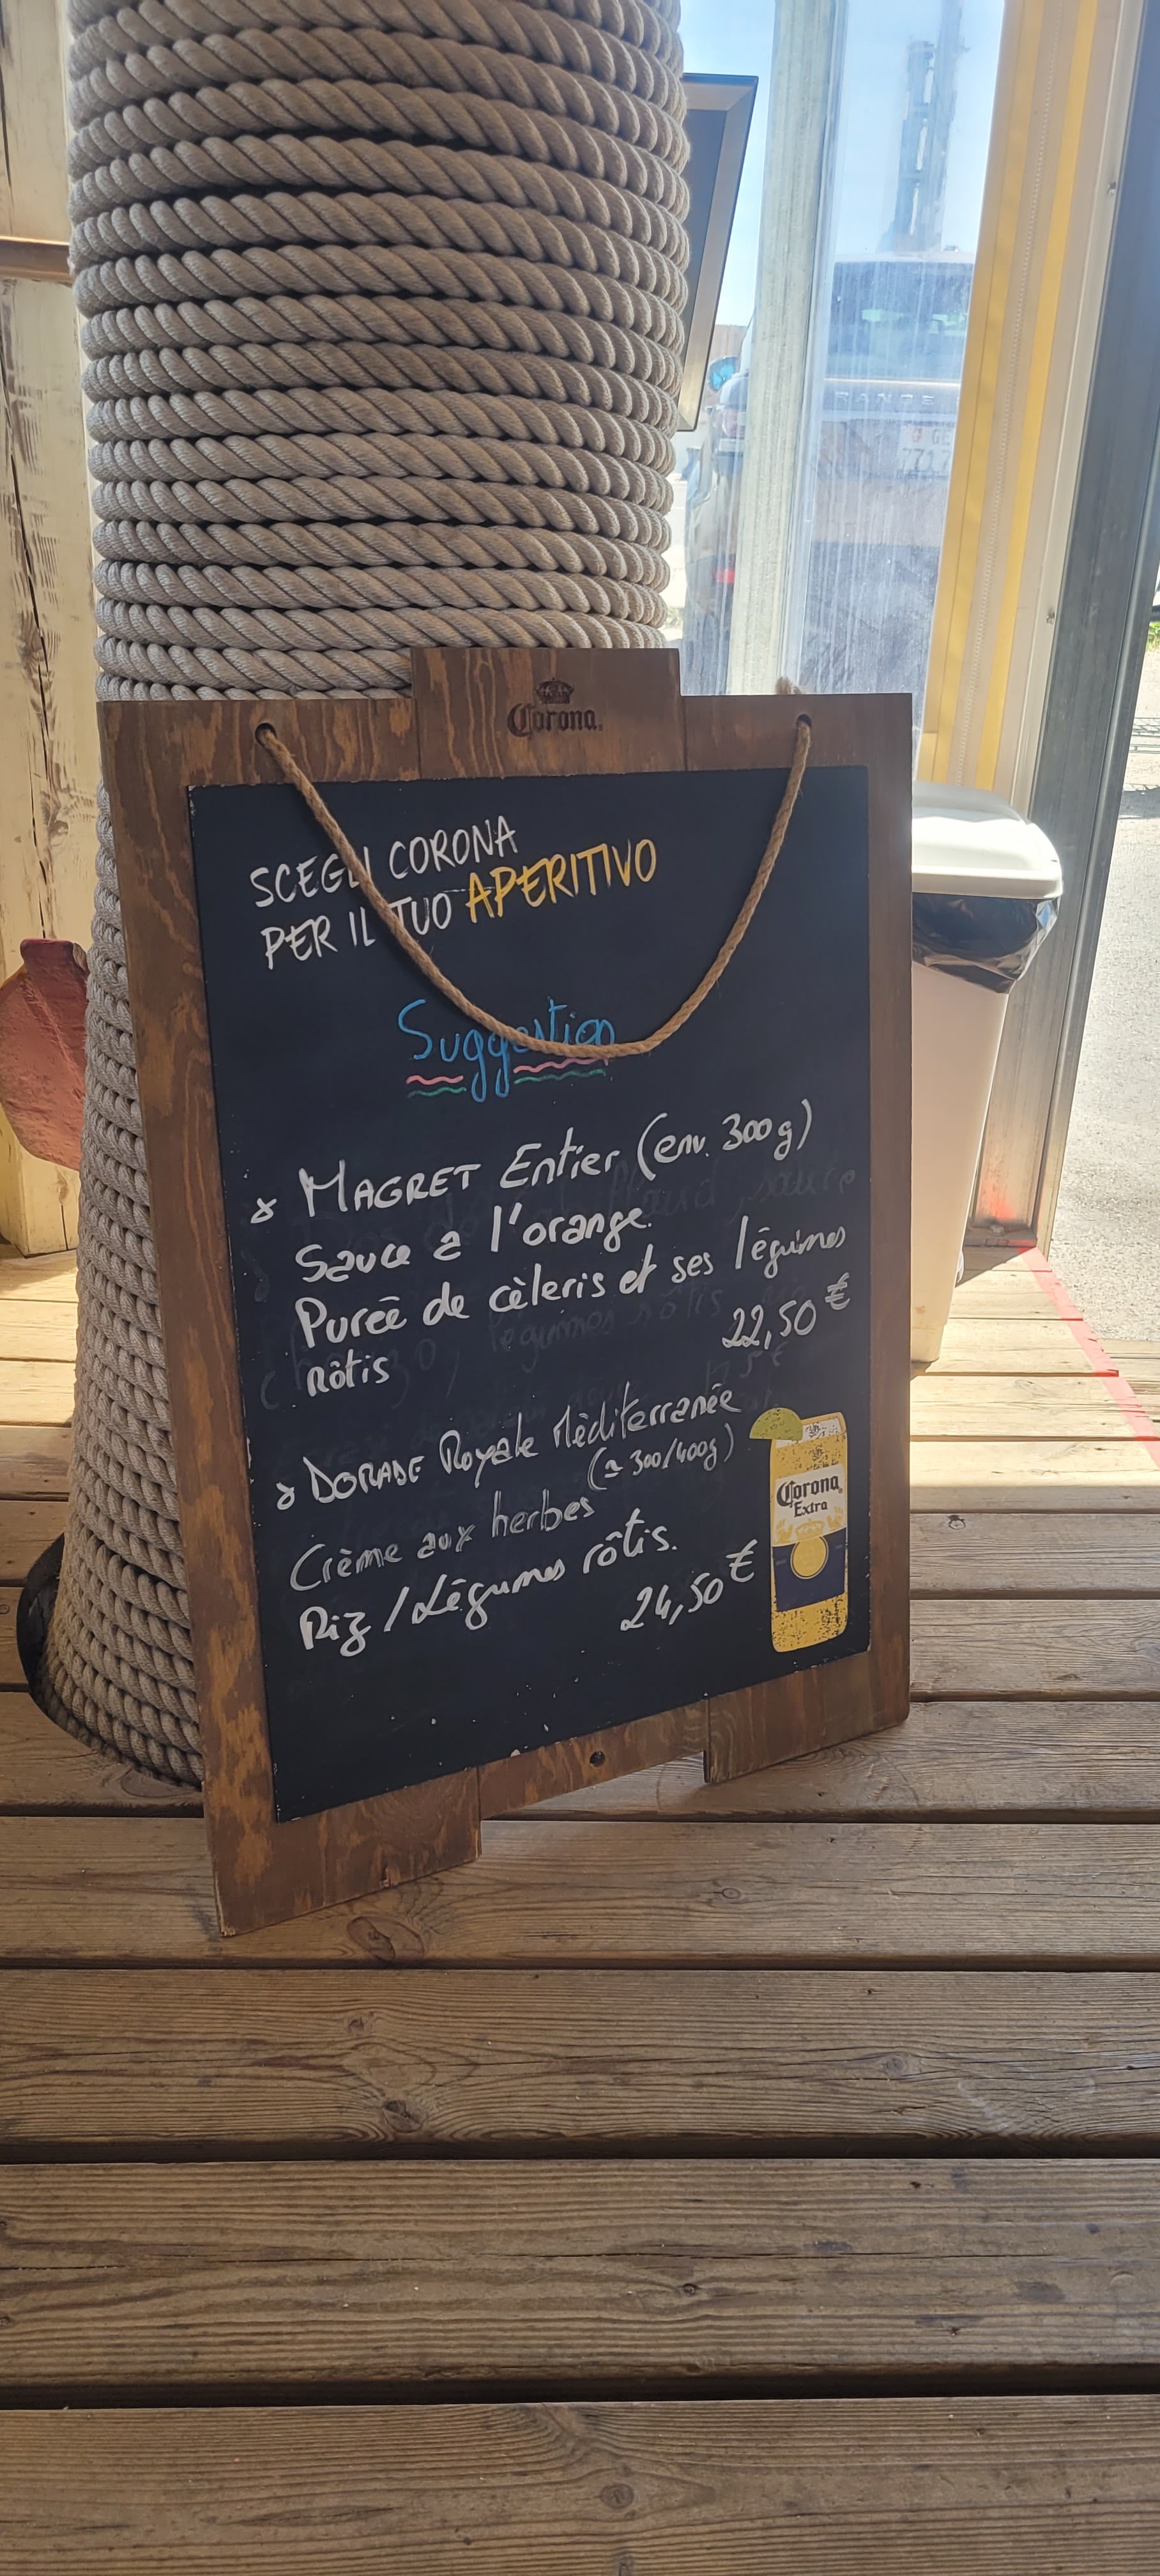 Corona
SCEGLI CORONA
PER IL TUO APERITIVO
Suggestion
MAGRET Entier (env. 300g)
Sauce a l'orange.
Purée de cèleris et ses légumes
rôtis
22,50 €
DORADE Royale Mèditerranée
(≃ 300/400g)
Crème aux herbes
Riz / Légumes rôtis.
24,50 €
Corona
Extra